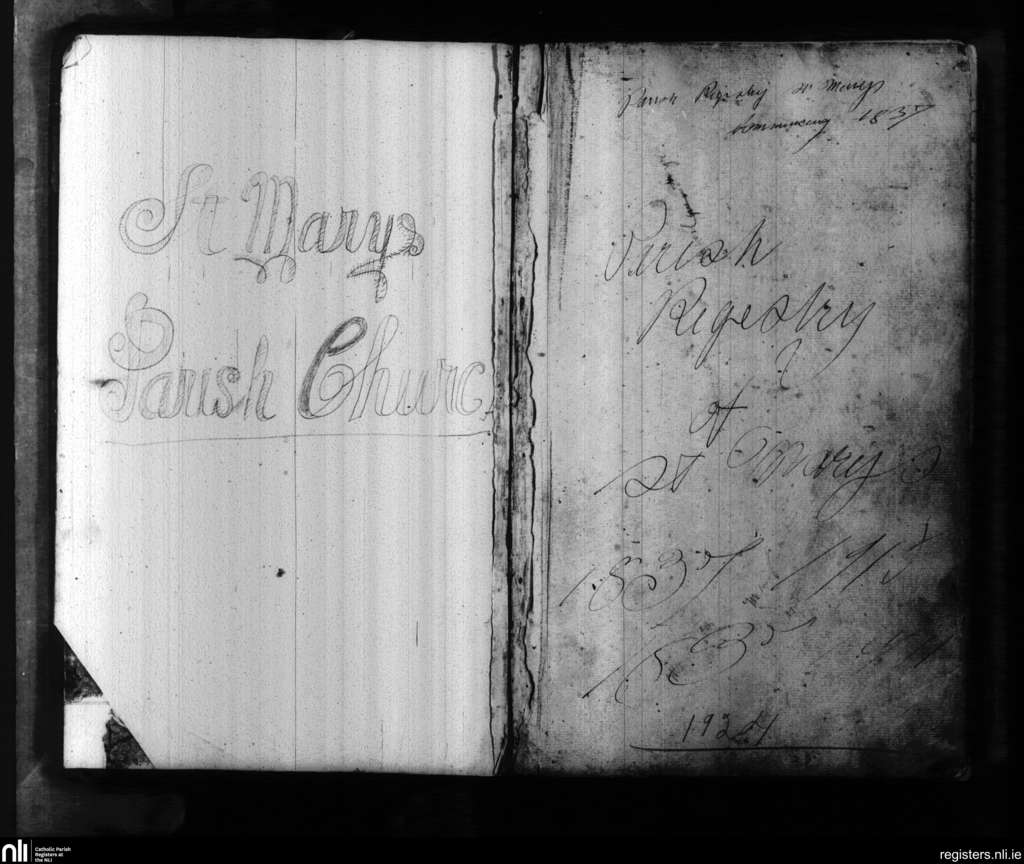 St Marys
Parish Church
Parish Registry St Marys
Commencing 1837
Parish
Regestry
of
St Marys
1837 1915
1837
1924
nli
Catholic Parish
Registers at
the NLI
registers.nli.ie